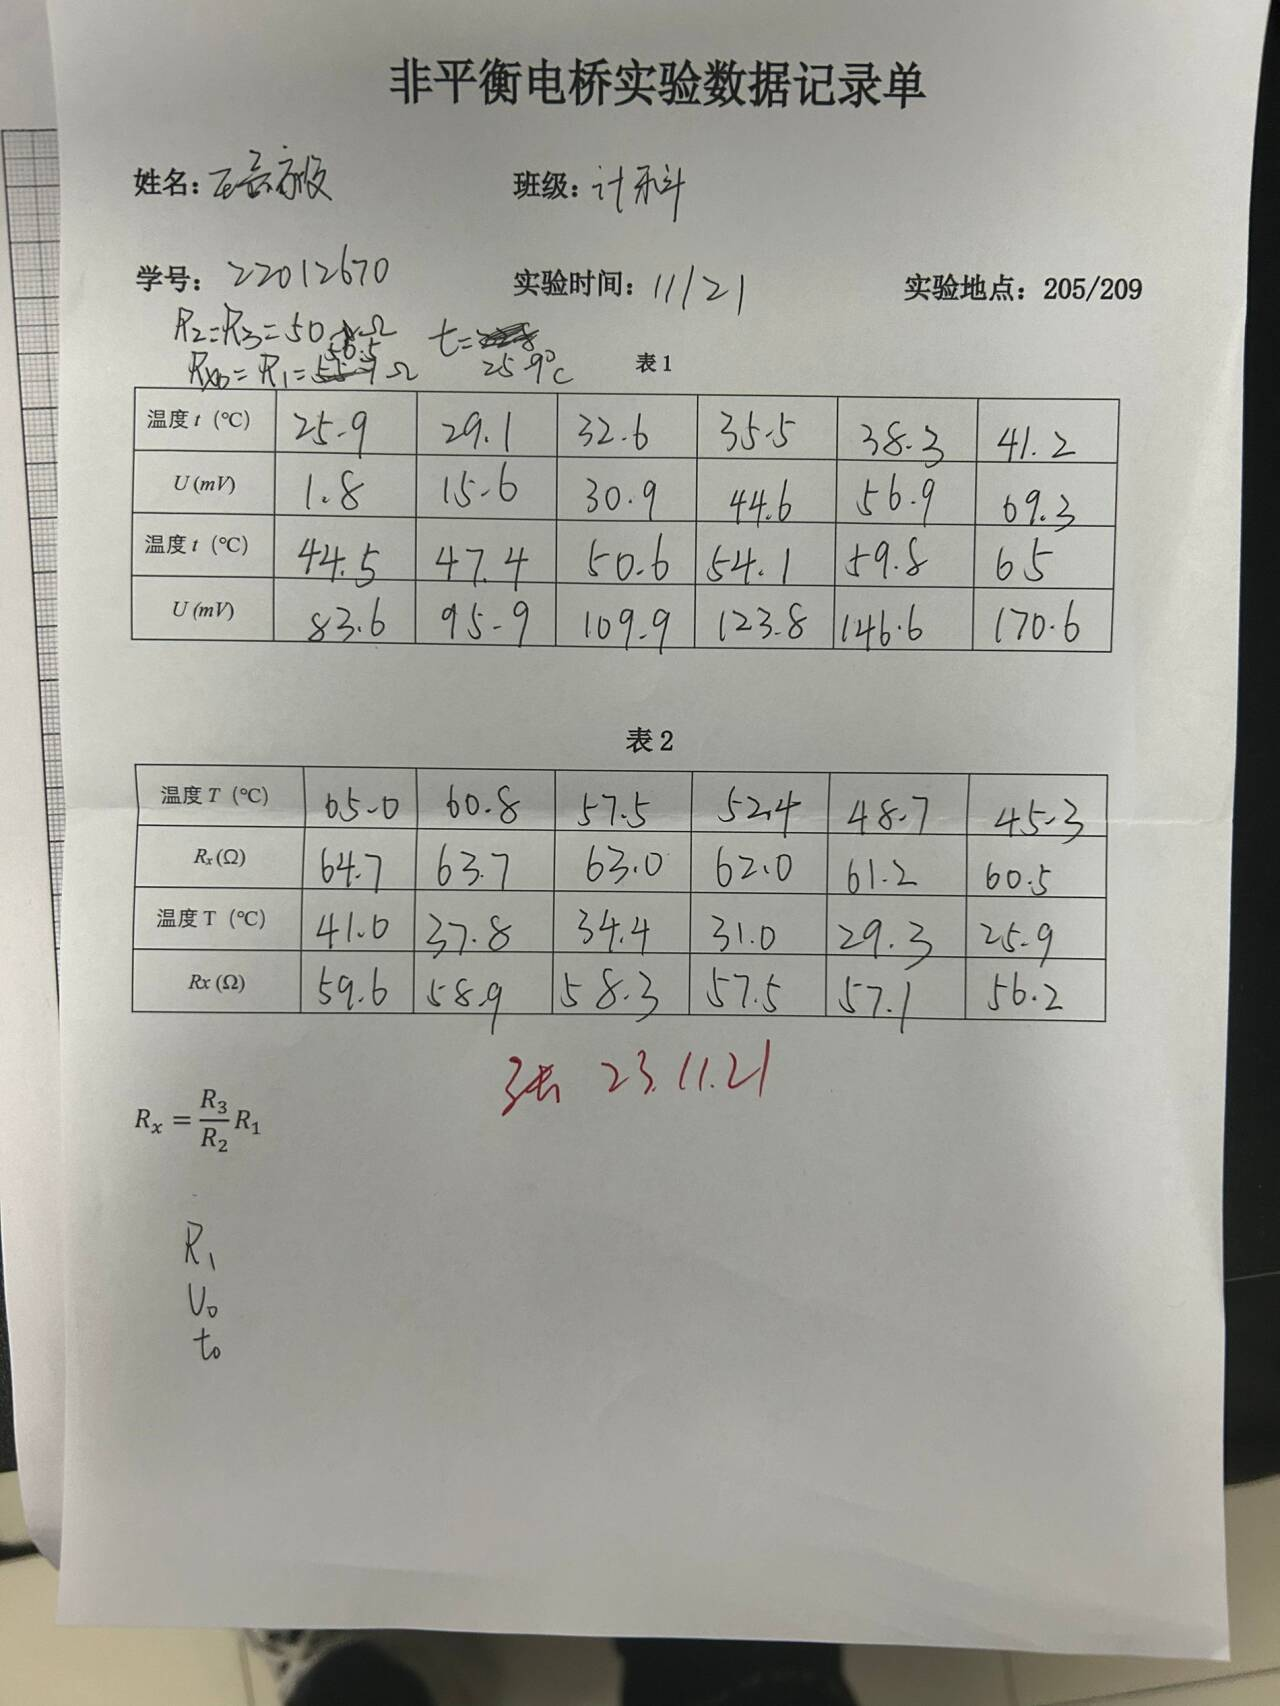 非平衡电桥实验数据记录单
姓名： 班级：计科
学号：22012670 实验时间：11/21 实验地点：205/209
R2=R3=50 Ω t=25.9℃
Rx0=R1=56.5 Ω
表1
温度 t（℃） 25.9 29.1 32.6 35.5 38.3 41.2
U (mV) 1.8 15.6 30.9 44.6 56.9 69.3
温度 t（℃） 44.5 47.4 50.6 54.1 59.8 65
U (mV) 83.6 95.9 109.9 123.8 146.6 170.6
表2
温度 T（℃） 65.0 60.8 57.5 52.4 48.7 45.3
Rx (Ω) 64.7 63.7 63.0 62.0 61.2 60.5
温度 T（℃） 41.0 37.8 34.4 31.0 29.3 25.9
Rx (Ω) 59.6 58.9 58.3 57.5 57.1 56.2
23.11.21
Rx = R3/R2 R1
R1
U0
t0